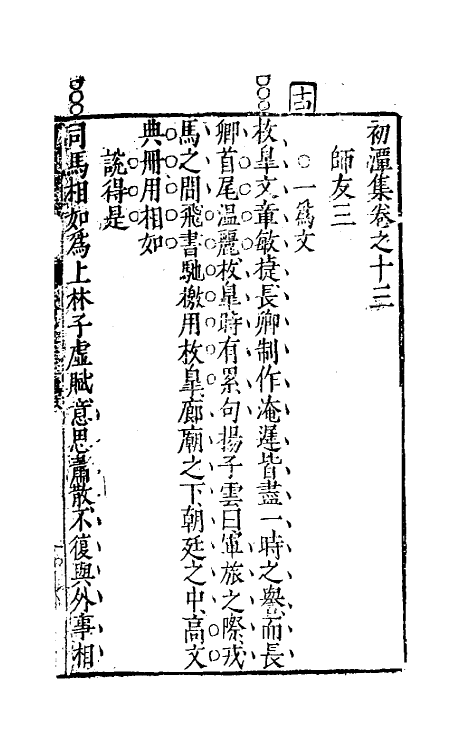 初潭集卷之十三
師友三
○一爲文
枚臯文章敏㨗長卿制作淹遲皆盡一時之譽而長
卿首尾温麗枚臯時有累句揚子雲曰軍旅之際戎
馬之間飛書馳檄用枚臯廊廟之下朝廷之中高文
典冊用相如
說得是
司馬相如爲上林子虛賦意思蕭散不復與外事相